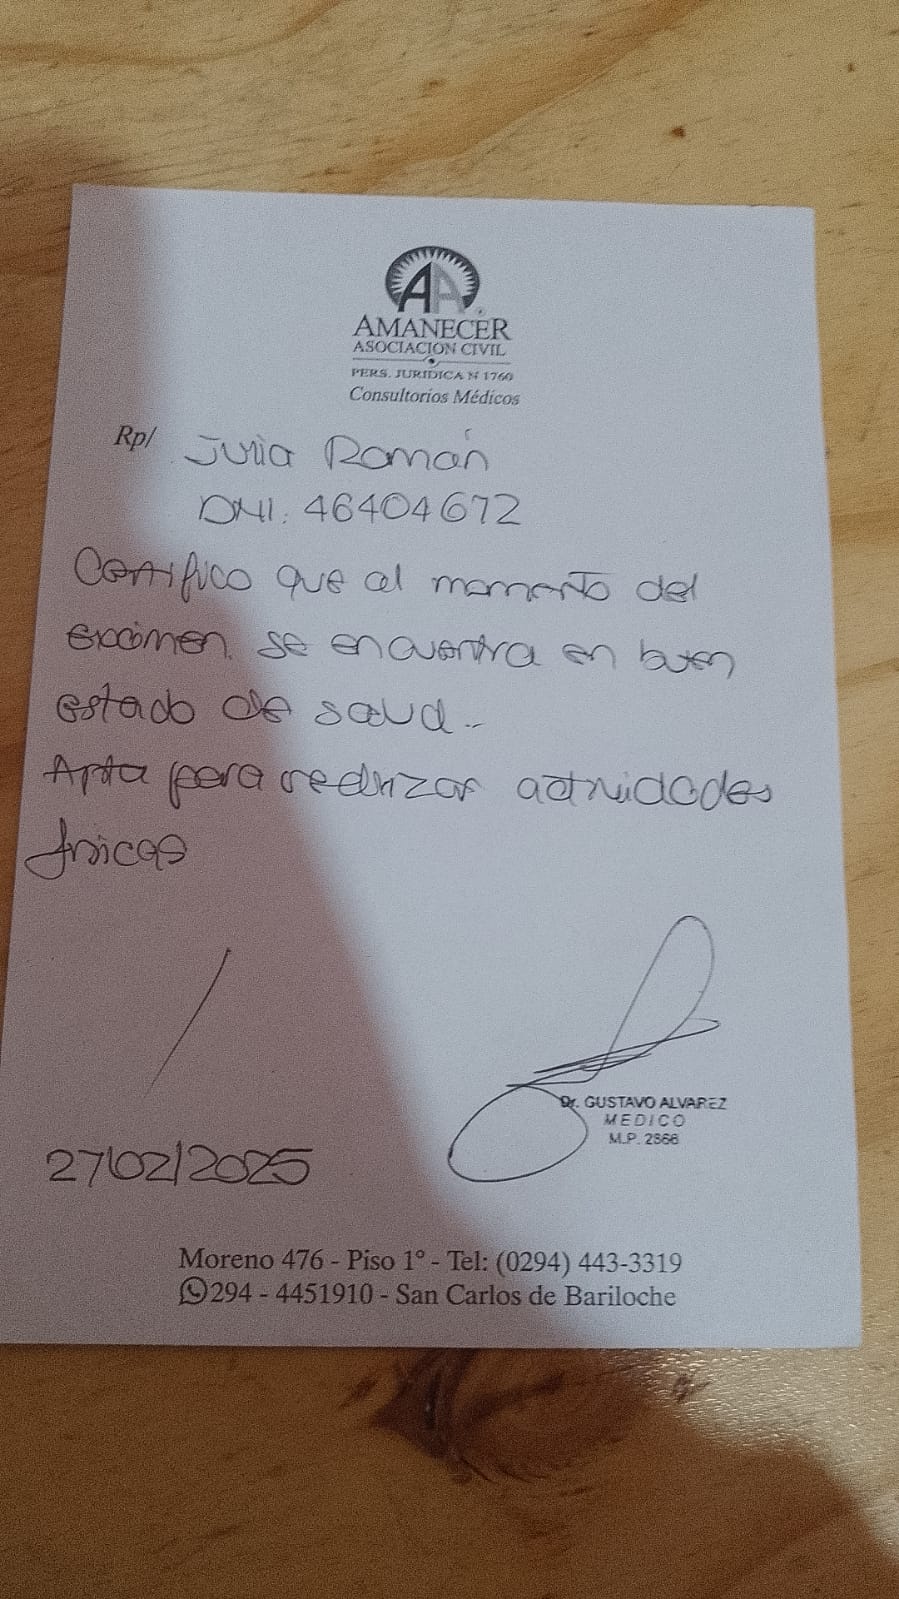 AA
AMANECER
ASOCIACION CIVIL
PERS. JURIDICA Nº 1760
Consultorios Médicos
Rp/ Julia Román
DNI: 46404672
Certifico que al momento del
exámen se encuentra en buen
estado de salud.-
Apta para realizar actividades
físicas
27/02/2025
Dr. GUSTAVO ALVAREZ
MEDICO
M.P. 2866
Moreno 476 - Piso 1° - Tel: (0294) 443-3319
294 - 4451910 - San Carlos de Bariloche